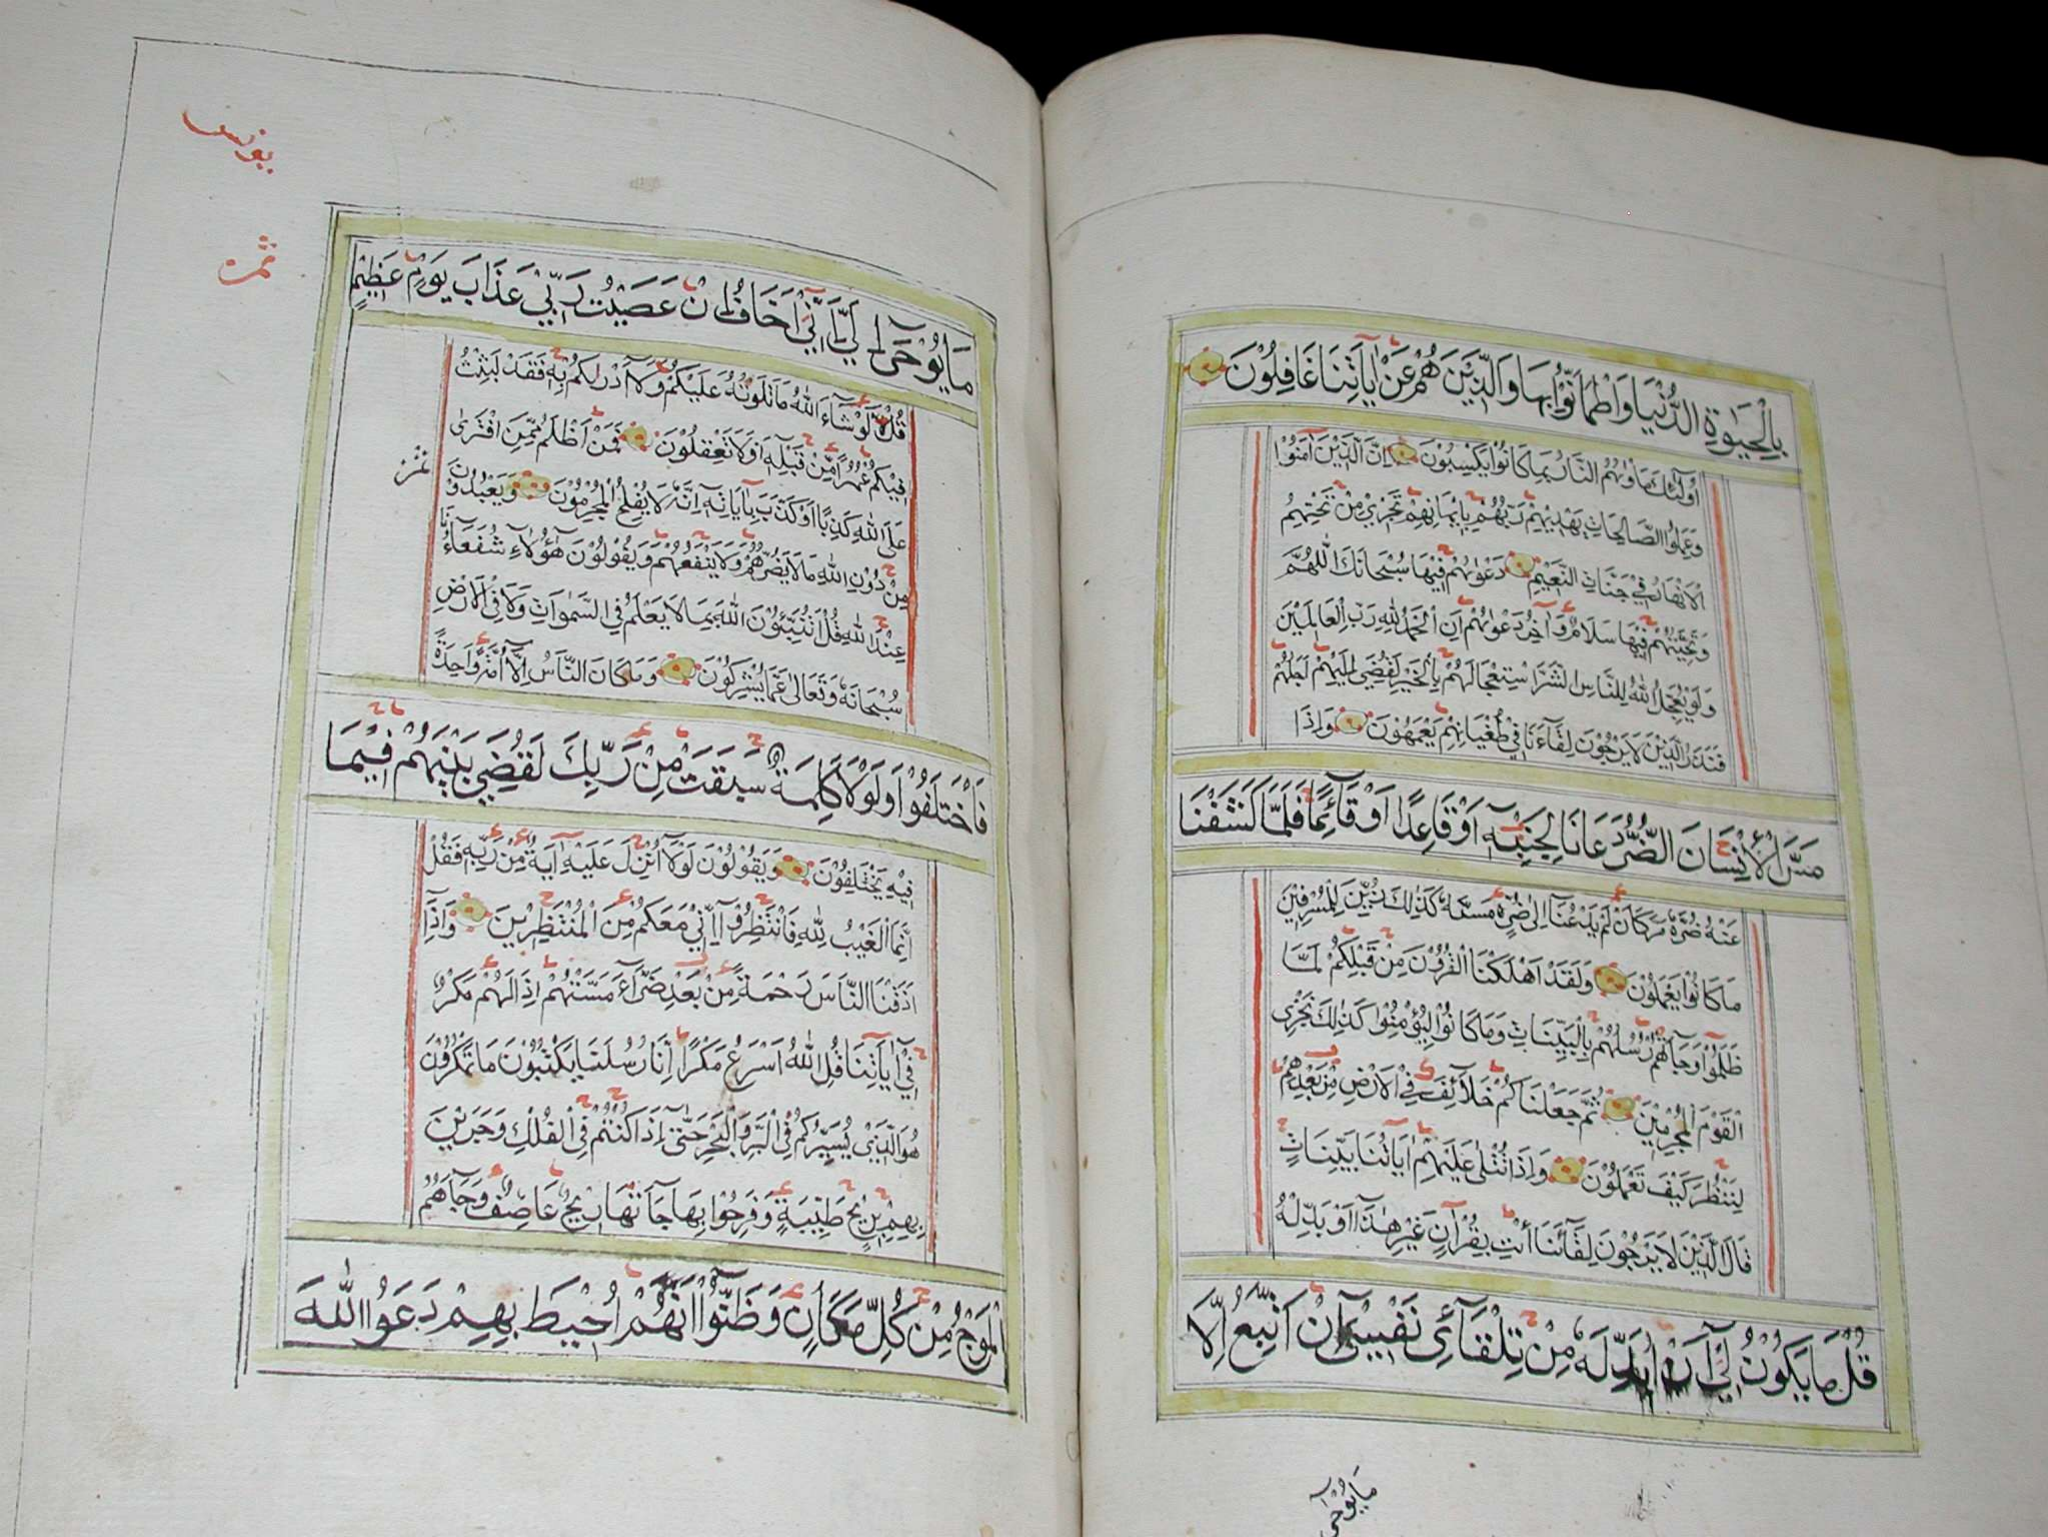 بِالْحَيٰوةِ الدُّنْيَا وَاطْمَاَنُّوْا بِهَا وَالَّذِيْنَ هُمْ عَنْ اٰيَاتِنَا غَافِلُوْنَ
اُولٰٓئِكَ مَاْوٰىهُمُ النَّارُ بِمَا كَانُوْا يَكْسِبُوْنَ اِنَّ الَّذِيْنَ اٰمَنُوْا
وَعَمِلُوا الصَّالِحَاتِ يَهْدِيْهِمْ رَبُّهُمْ بِاِيْمَانِهِمْ تَجْرِيْ مِنْ تَحْتِهِمُ
الْاَنْهَارُ فِيْ جَنَّاتِ النَّعِيْمِ دَعْوٰىهُمْ فِيْهَا سُبْحَانَكَ اللّٰهُمَّ
وَتَحِيَّتُهُمْ فِيْهَا سَلَامٌ وَاٰخِرُ دَعْوٰىهُمْ اَنِ الْحَمْدُ لِلّٰهِ رَبِّ الْعَالَمِيْنَ
وَلَوْ يُعَجِّلُ اللّٰهُ لِلنَّاسِ الشَّرَّ اسْتِعْجَالَهُمْ بِالْخَيْرِ لَقُضِيَ اِلَيْهِمْ اَجَلُهُمْ
فَنَذَرُ الَّذِيْنَ لَا يَرْجُوْنَ لِقَآءَنَا فِيْ طُغْيَانِهِمْ يَعْمَهُوْنَ وَاِذَا
مَسَّ الْاِنْسَانَ الضُّرُّ دَعَانَا لِجَنْبِهٖٓ اَوْ قَاعِدًا اَوْ قَآئِمًا فَلَمَّا كَشَفْنَا
عَنْهُ ضُرَّهٗ مَرَّ كَاَنْ لَمْ يَدْعُنَا اِلٰى ضُرٍّ مَسَّهٗ كَذٰلِكَ زُيِّنَ لِلْمُسْرِفِيْنَ
مَا كَانُوْا يَعْمَلُوْنَ وَلَقَدْ اَهْلَكْنَا الْقُرُوْنَ مِنْ قَبْلِكُمْ لَمَّا
ظَلَمُوْا وَجَآءَتْهُمْ رُسُلُهُمْ بِالْبَيِّنَاتِ وَمَا كَانُوْا لِيُؤْمِنُوْا كَذٰلِكَ نَجْزِي
الْقَوْمَ الْمُجْرِمِيْنَ ثُمَّ جَعَلْنَاكُمْ خَلَآئِفَ فِي الْاَرْضِ مِنْ بَعْدِهِمْ
لِنَنْظُرَ كَيْفَ تَعْمَلُوْنَ وَاِذَا تُتْلٰى عَلَيْهِمْ اٰيَاتُنَا بَيِّنَاتٍ
قَالَ الَّذِيْنَ لَا يَرْجُوْنَ لِقَآئَنَا ائْتِ بِقُرْاٰنٍ غَيْرِ هٰذَا اَوْ بَدِّلْهُ
قُلْ مَا يَكُوْنُ لِيْٓ اَنْ اُبَدِّلَهٗ مِنْ تِلْقَآئِ نَفْسِيْ اِنْ اَتَّبِعُ اِلَّا
مَا يُوْحٰى
يونس
مَا يُوْحٰىٓ اِلَيَّ اِنِّيْٓ اَخَافُ اِنْ عَصَيْتُ رَبِّيْ عَذَابَ يَوْمٍ عَظِيْمٍ
قُلْ لَوْ شَآءَ اللّٰهُ مَا تَلَوْتُهٗ عَلَيْكُمْ وَلَآ اَدْرٰىكُمْ بِهٖ فَقَدْ لَبِثْتُ
فِيْكُمْ عُمُرًا مِنْ قَبْلِهٖٓ اَوَلَا تَعْقِلُوْنَ فَمَنْ اَظْلَمُ مِمَّنِ افْتَرٰى
عَلَى اللّٰهِ كَذِبًا اَوْ كَذَّبَ بِاٰيَاتِهٖٓ اِنَّهٗ لَا يُفْلِحُ الْمُجْرِمُوْنَ وَيَعْبُدُوْنَ
مِنْ دُوْنِ اللّٰهِ مَا لَا يَضُرُّهُمْ وَلَا يَنْفَعُهُمْ وَيَقُوْلُوْنَ هٰٓؤُلَآءِ شُفَعَآؤُنَا
عِنْدَ اللّٰهِ قُلْ اَتُنَبِّئُوْنَ اللّٰهَ بِمَا لَا يَعْلَمُ فِي السَّمٰوَاتِ وَلَا فِي الْاَرْضِ
سُبْحَانَهٗ وَتَعَالٰى عَمَّا يُشْرِكُوْنَ وَمَا كَانَ النَّاسُ اِلَّآ اُمَّةً وَاحِدَةً
فَاخْتَلَفُوْا وَلَوْلَا كَلِمَةٌ سَبَقَتْ مِنْ رَبِّكَ لَقُضِيَ بَيْنَهُمْ فِيْمَا
فِيْهِ يَخْتَلِفُوْنَ وَيَقُوْلُوْنَ لَوْلَآ اُنْزِلَ عَلَيْهِ اٰيَةٌ مِنْ رَبِّهٖ فَقُلْ
اِنَّمَا الْغَيْبُ لِلّٰهِ فَانْتَظِرُوْٓا اِنِّيْ مَعَكُمْ مِنَ الْمُنْتَظِرِيْنَ وَاِذَآ
اَذَقْنَا النَّاسَ رَحْمَةً مِنْ بَعْدِ ضَرَّآءَ مَسَّتْهُمْ اِذَا لَهُمْ مَكْرٌ
فِيْٓ اٰيَاتِنَا قُلِ اللّٰهُ اَسْرَعُ مَكْرًا اِنَّ رُسُلَنَا يَكْتُبُوْنَ مَا تَمْكُرُوْنَ
هُوَ الَّذِيْ يُسَيِّرُكُمْ فِي الْبَرِّ وَالْبَحْرِ حَتّٰىٓ اِذَا كُنْتُمْ فِي الْفُلْكِ وَجَرَيْنَ
بِهِمْ بِرِيْحٍ طَيِّبَةٍ وَفَرِحُوْا بِهَا جَآءَتْهَا رِيْحٌ عَاصِفٌ وَجَآءَهُمُ
الْمَوْجُ مِنْ كُلِّ مَكَانٍ وَظَنُّوْٓا اَنَّهُمْ اُحِيْطَ بِهِمْ دَعَوُا اللّٰهَ